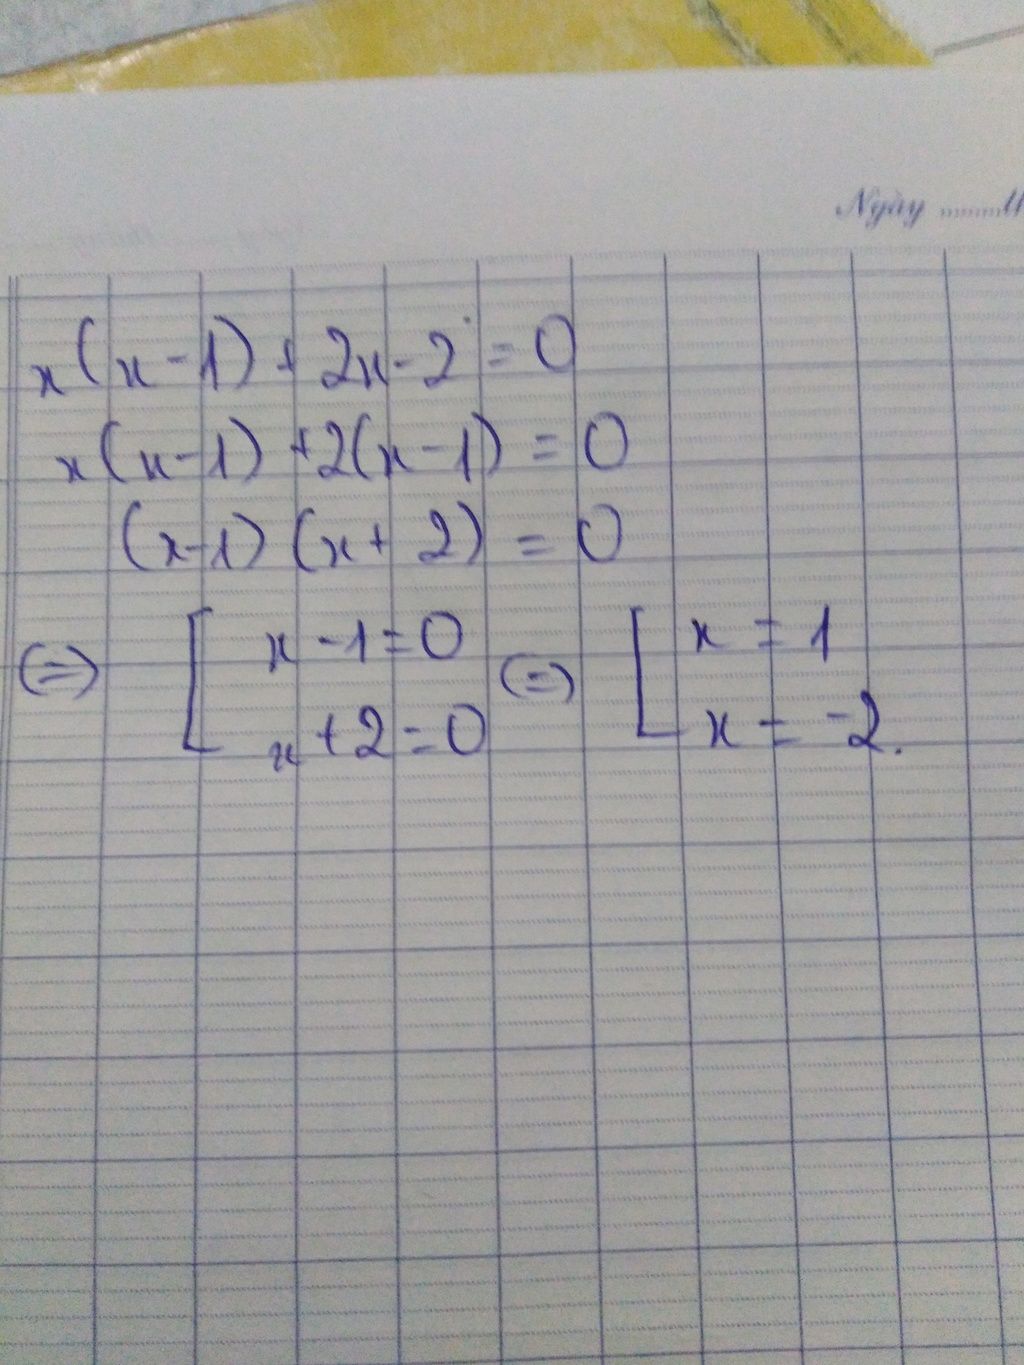 Ngày ........
x(x-1) + 2x-2 = 0
x(x-1) +2(x-1) = 0
(x-1) (x+2) = 0
(=) [ x-1=0 (=) [ x = 1
x+2=0 x = -2.